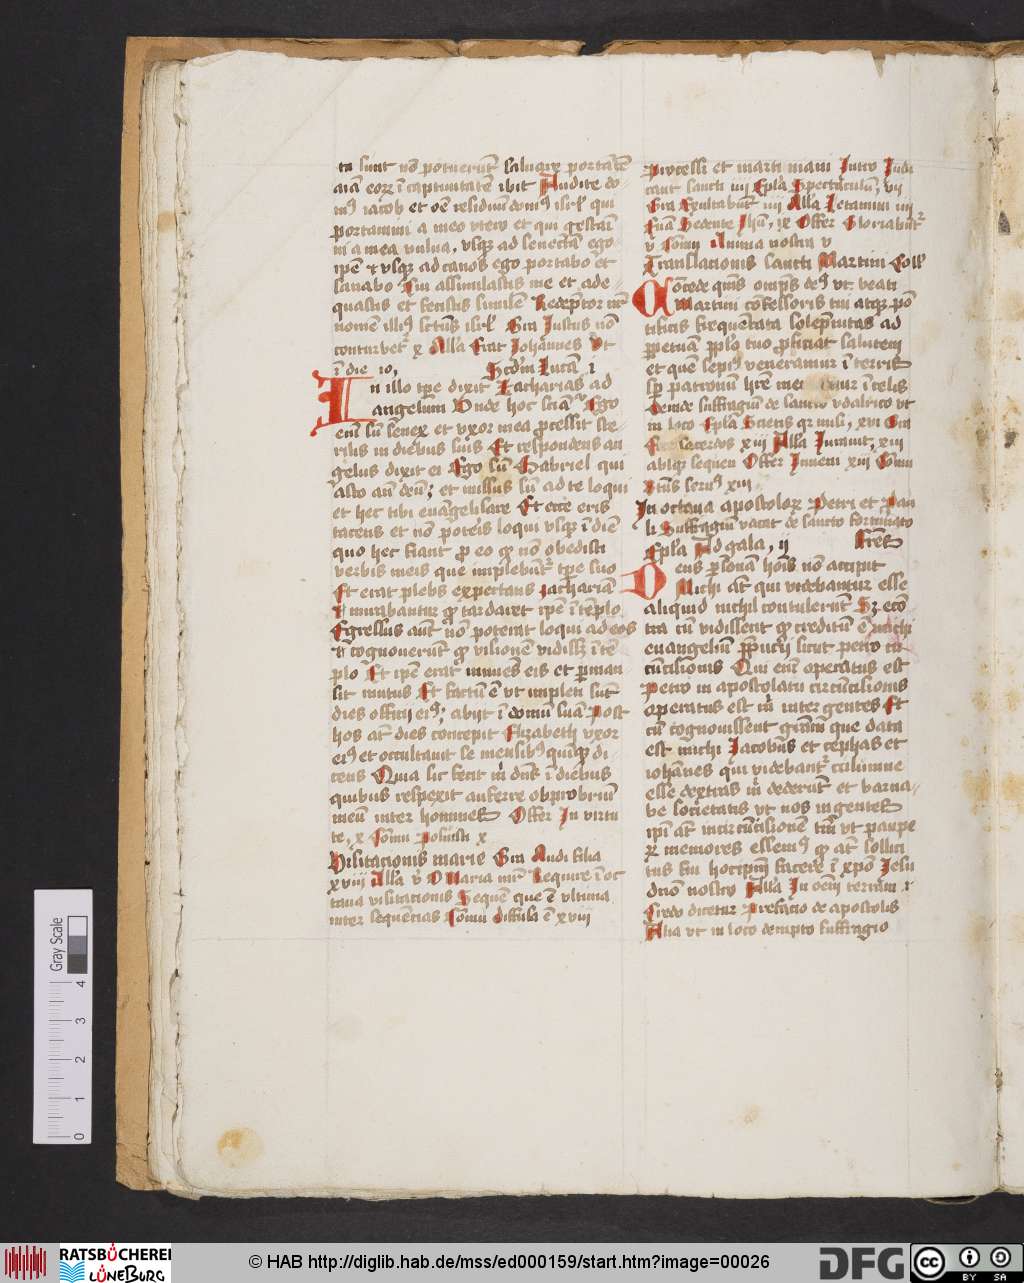 ta sunt nō potuerūt saluare portātē
aīaz eoꝝ ī captiuitatē ibit Audite do
mꝰ iacob et oē residuū domꝰ isrl' qui
portamini a meo vtero et qui gestam
ni a mea vulua, vsqꝫ ad senectā ego
ipē et vsqꝫ ad canos ego portabo et
sanabo Cui assimilastis me et ade
quastis et fecistis similē Redēptor nr̄
nomē illiꝰ sctūs isrl' Gra Justus nō
conturbet' x All'a Erat Johannes Vt
ī die io, Scd'm Lucā i
In illo tp̄e dixit Zacharias ad
angelum Vnde hoc sciā Ego
em̄ sū senex et vxor mea p̄cessit ste
rilis in diebus suis Et respondens an
gelus dixit ei Ego sū Gabriel qui
asto an̄ deū; et missus sū ad te loqui
et hec tibi euāgelisare Et ecce eris
tacens et nō poteris loqui vsqꝫ ī diē
quo hec fiant p eo qꝫ nō obedisti
verbis meis que implebūt' tp̄e suo
Et erat plebs expectans zachariā
Et mirabantur qꝫ tardaret ipē ī tēplo
Egressus aūt nō poterat loqui ad eos
et cognouerūt qꝫ visionē vidissꝫ ī tē
plo Et ipē erat innuēs eis et pman
sit mutus Et factū ē vt impleti sūt
dies officij eiꝰ; abijt ī domū suā Post
hos at̄ dies concepit Elizabeth vxor
eiꝰ et occultauit se mensibꝰ quinqꝫ di
cens Quia sic fecit m̄ dn̄s ī diebus
quibus respexit auferre obprobriū
meū inter homines Offer In virtu
te, x Com̄u Posuisti x
Visitacionis marie Gra Audi filia
xviij All'a v̄ O Maria mr̄ Require ī oc
taua visitacionis Sequē que ē vltima
inter sequētias Com̄u Diffusa ē xviij
Processi et marti niani Intro Judi
cant sancti iij Epl'a Spectaculum, vij
Gra Exultabūt iiij All'a Letamini iij
Euā Sedente Jhū, ix Offer Gloriabūt'
v Com̄u Anima nostra v
Translacionis sancti Martini Coll'
Concede qm̄s omps deꝰ vt beati
Martini cōfessoris tui atqꝫ pō
tificis frequētata solēpnitas ad
ppetuā pp'lo tuo pficiat salutem
et quē sepiꝰ veneramur ī terris
sp̄ patronum hr̄e me mur ī celis
Deinde suffragiū de sancto vdalrico vt
in loco Epl'a Scietis qꝛ misi, xvi Gra
Ecce sacerdos xiij All'a Jurauit, xiij
absqꝫ sequen Offer Inueni xiij Com̄u
Btūs seruꝰ xiij
In octaua apostoloꝝ Petri et Pau
li Suffragium vacat de sancto fortunato
Epl'a Ad gala, ij Frēs
Deus psonā hoīs nō accipit
Michi at̄ qui videbantur esse
aliquid nichil contulerunt Sꝫ ecō
tra cū vidissent qꝫ creditū ē michi
euangeliū ppucij sicut petro cir
cūcisionis Qui em̄ operatus est
Petro in apostolatu circūcisionis
operatus est m̄ inter gentes Et
cū cognouissent grām que data
est michi Jacobus et cephas et
iohānes qui videbant' columne
esse dextras m̄ dederūt et barna
be societatis vt nos in gentes
ipī at̄ in circūcisionē tm̄ vt paupe
rū memores essemꝰ qꝫ at̄ sollici
tus fui hoc ipm̄ facere ī xpō Jesu
dn̄o nostro All'a In oēm terram i
Credo dicetur Prefacio de apostolis
Alia vt in loco dempto suffragio
Gray Scale
4
3
2
1
0
RATSBÜCHEREI
LÜNEBURG
© HAB http://diglib.hab.de/mss/ed000159/start.htm?image=00026
DFG
cc
BY
SA